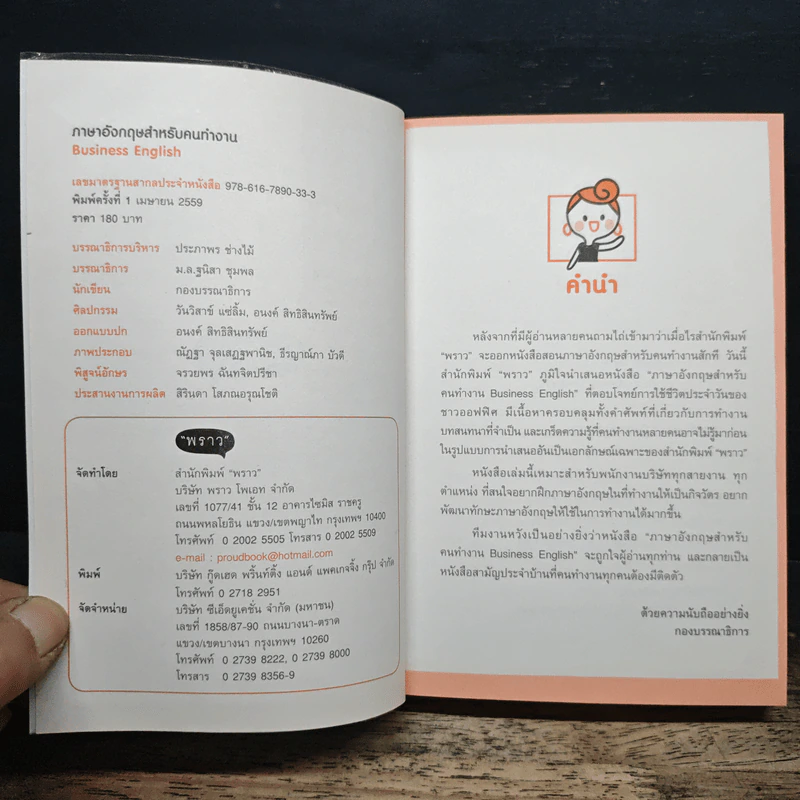 ภาษาอังกฤษสำหรับคนทำงาน
Business English
เลขมาตรฐานสากลประจำหนังสือ 978-616-7890-33-3
พิมพ์ครั้งที่ 1 เมษายน 2559
ราคา 180 บาท
บรรณาธิการบริหาร ประภาพร ช่างไม้
บรรณาธิการ ม.ล.ฐนิสา ชุมพล
นักเขียน กองบรรณาธิการ
ศิลปกรรม วันวิสาข์ แซ่ลิ้ม, อนงค์ สิทธิสินทรัพย์
ออกแบบปก อนงค์ สิทธิสินทรัพย์
ภาพประกอบ ณัฏฐา จุลเสฏฐพานิช, ธีรญาณ์ภา บัวดี
พิสูจน์อักษร จรวยพร ฉันทจิตปรีชา
ประสานงานการผลิต สิรินดา โสภณอรุณโชติ
"พราว"
จัดทำโดย สำนักพิมพ์ "พราว"
บริษัท พราว โพเอท จำกัด
เลขที่ 1077/41 ชั้น 12 อาคารไซมิส ราชครู
ถนนพหลโยธิน แขวง/เขตพญาไท กรุงเทพฯ 10400
โทรศัพท์ 0 2002 5505 โทรสาร 0 2002 5509
e-mail : proudbook@hotmail.com
พิมพ์ บริษัท กู๊ดเฮด พริ้นท์ติ้ง แอนด์ แพคเกจจิ้ง กรุ๊ป จำกัด
โทรศัพท์ 0 2718 2951
จัดจำหน่าย บริษัท ซีเอ็ดยูเคชั่น จำกัด (มหาชน)
เลขที่ 1858/87-90 ถนนบางนา-ตราด
แขวง/เขตบางนา กรุงเทพฯ 10260
โทรศัพท์ 0 2739 8222, 0 2739 8000
โทรสาร 0 2739 8356-9
คำนำ
หลังจากที่มีผู้อ่านหลายคนถามไถ่เข้ามาว่าเมื่อไรสำนักพิมพ์
"พราว" จะออกหนังสือสอนภาษาอังกฤษสำหรับคนทำงานสักที วันนี้
สำนักพิมพ์ "พราว" ภูมิใจนำเสนอหนังสือ "ภาษาอังกฤษสำหรับ
คนทำงาน Business English" ที่ตอบโจทย์การใช้ชีวิตประจำวันของ
ชาวออฟฟิศ มีเนื้อหาครอบคลุมทั้งคำศัพท์ที่เกี่ยวกับการทำงาน
บทสนทนาที่จำเป็น และเกร็ดความรู้ที่คนทำงานหลายคนอาจไม่รู้มาก่อน
ในรูปแบบการนำเสนออันเป็นเอกลักษณ์เฉพาะของสำนักพิมพ์ "พราว"
หนังสือเล่มนี้เหมาะสำหรับพนักงานบริษัททุกสายงาน ทุก
ตำแหน่ง ที่สนใจอยากฝึกภาษาอังกฤษในที่ทำงานให้เป็นกิจวัตร อยาก
พัฒนาทักษะภาษาอังกฤษให้ใช้ในการทำงานได้มากขึ้น
ทีมงานหวังเป็นอย่างยิ่งว่าหนังสือ "ภาษาอังกฤษสำหรับ
คนทำงาน Business English" จะถูกใจผู้อ่านทุกท่าน และกลายเป็น
หนังสือสามัญประจำบ้านที่คนทำงานทุกคนต้องมีติดตัว
ด้วยความนับถืออย่างยิ่ง
กองบรรณาธิการ